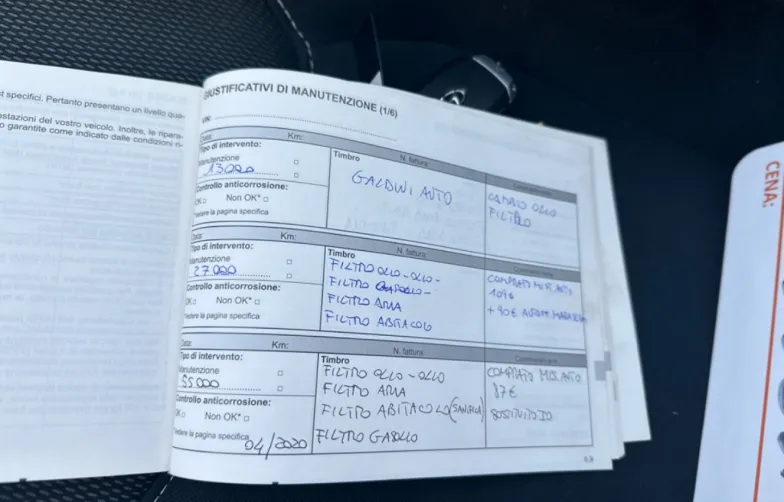 t specifici. Pertanto presentano un livello qua-
estazioni del vostro veicolo. Inoltre, le ripara-
o garantite come indicato dalle condizioni ri-
GIUSTIFICATIVI DI MANUTENZIONE (1/6)
VIN:
Data: Km: N. fattura
Tipo di intervento: Timbro
Manutenzione
13000
GALDINI AUTO
CAMBIO OLIO
FILTRO
Controllo anticorrosione:
OK □ Non OK* □
*Vedere la pagina specifica
Data: Km: N. fattura
Tipo di intervento: Timbro
Manutenzione
27.000
FILTRO OLIO - OLIO -
FILTRO GASOLIO -
FILTRO ARIA
FILTRO ABITACOLO
COMPRATO MISTERAUTO
109€
+ 90€
Controllo anticorrosione:
OK □ Non OK* □
*Vedere la pagina specifica
Data: Km: N. fattura
Tipo di intervento: Timbro
Manutenzione
55000
FILTRO OLIO - OLIO
FILTRO ARIA
FILTRO ABITACOLO
FILTRO GASOLIO
COMPRATO
87€
Controllo anticorrosione:
OK □ Non OK* □
*Vedere la pagina specifica
04/2020
CENA: